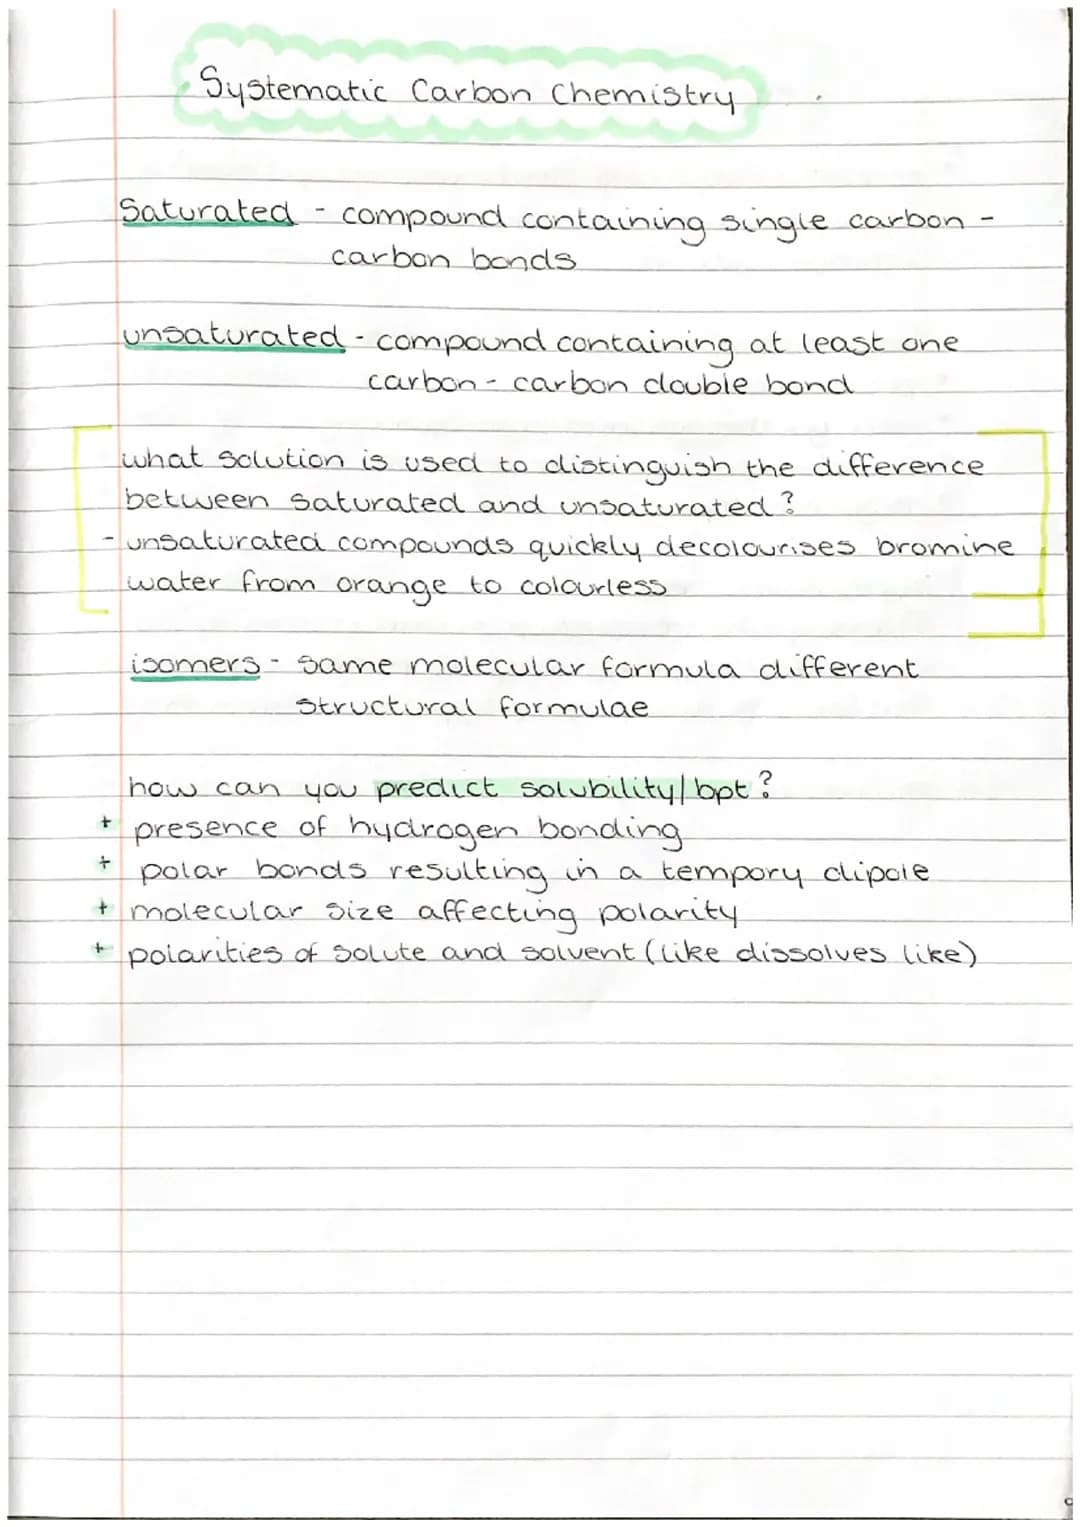 Systematic Carbon Chemistry
Saturated - compound containing single carbon -
carbon bonds
unsaturated - compound containing at least one
carbon - carbon double bond
what solution is used to distinguish the difference
between saturated and unsaturated?
- unsaturated compounds quickly decolourises bromine
water from orange to colourless
isomers - same molecular formula different
structural formulae
how can you predict solubility/bpt?
+ presence of hydrogen bonding
+ polar bonds resulting in a tempory dipole
+ molecular size affecting polarity
+ polarities of solute and solvent (like dissolves like)